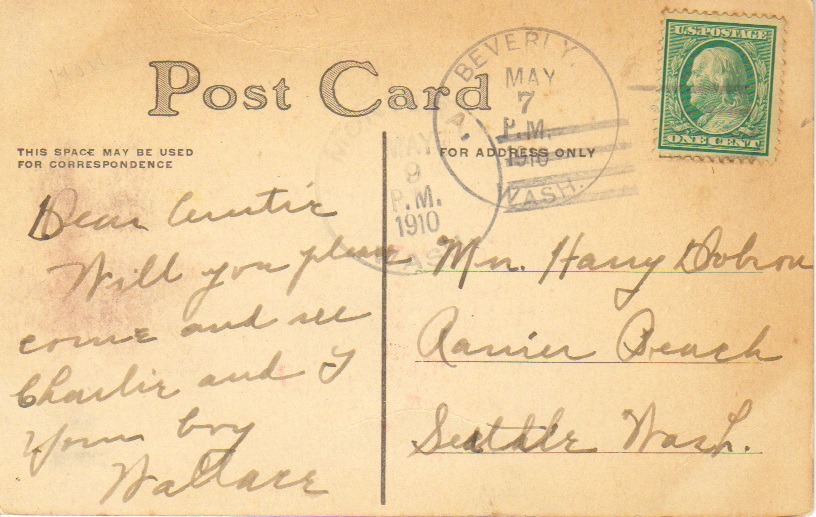 Post Card
U.S. POSTAGE
ONE CENT
BEVERLY.
MAY
7
P.M.
1910
WASH.
MAY
9
P.M.
1910
WASH
THIS SPACE MAY BE USED
FOR CORRESPONDENCE
FOR ADDRESS ONLY
Dear Auntie
Will you please
come and see
Charlie and I
Your boy
Wallace
Mrs. Harry Dobson
Ranier Beach
Seattle Wash.